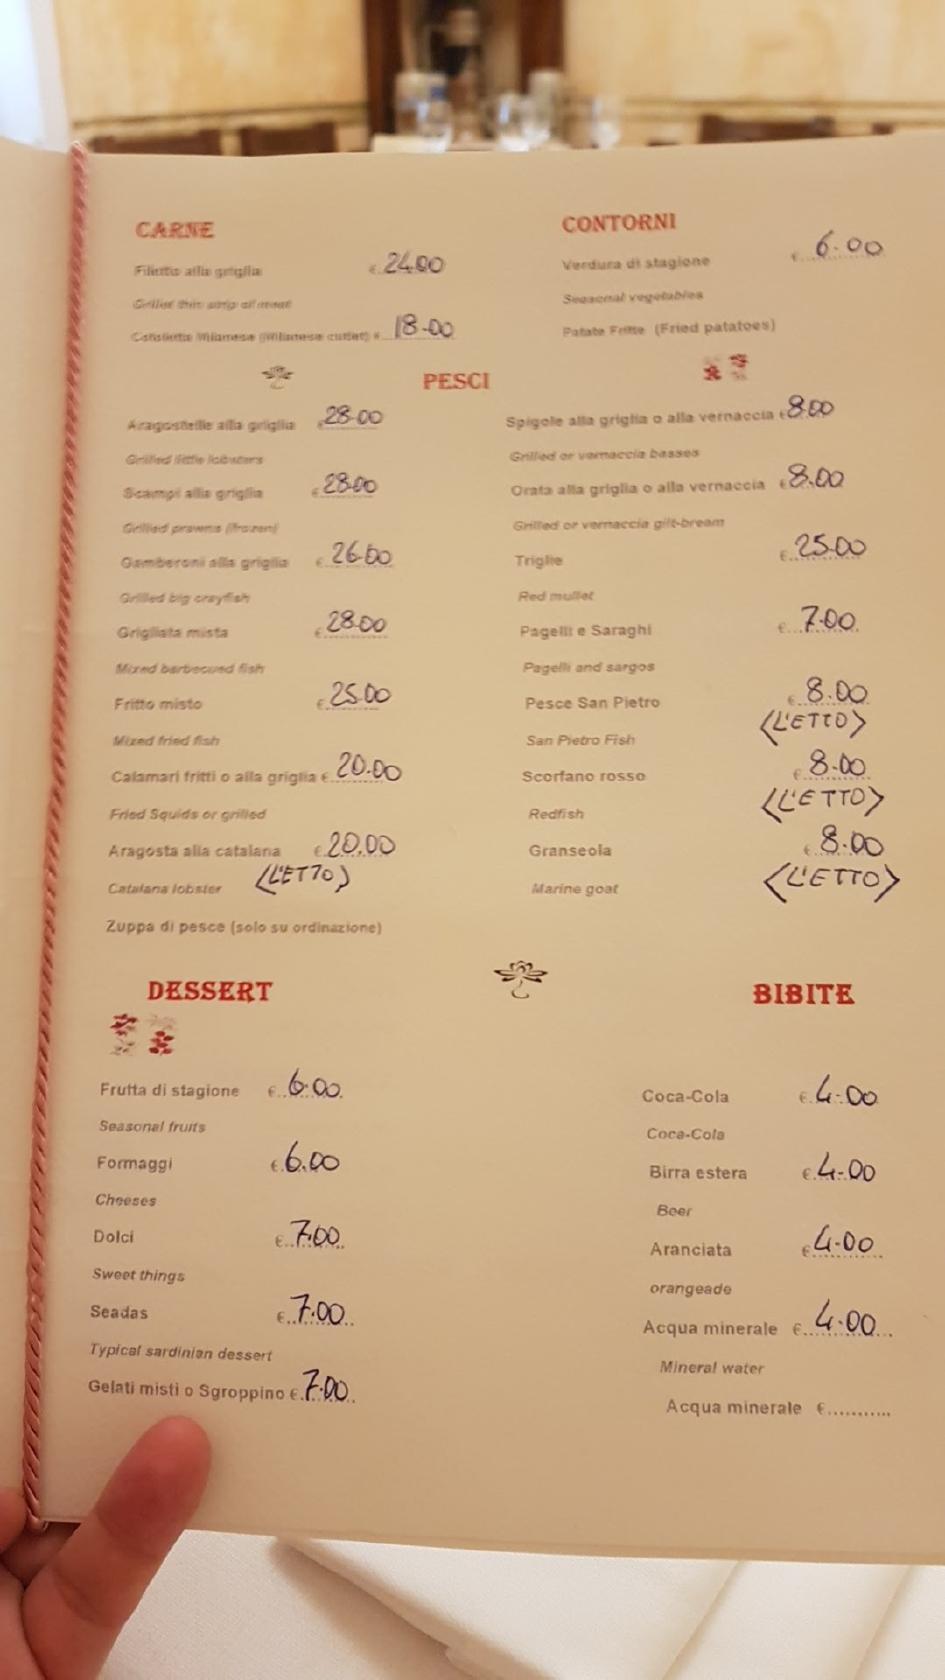 CARNE
Filetto alla griglia € 24.00
Grilled thin strip of meat
Cotoletta Milanese (Milanese cutlet) € 18.00
CONTORNI
Verdura di stagione € 6.00
Seasonal vegetables
Patate Fritte (Fried patatoes)
PESCI
Aragostelle alla griglia € 28.00
Grilled little lobsters
Scampi alla griglia € 28.00
Grilled prawns (frozen)
Gamberoni alla griglia € 26.00
Grilled big crayfish
Grigliata mista € 28.00
Mixed barbecued fish
Fritto misto € 25.00
Mixed fried fish
Calamari fritti o alla griglia € 20.00
Fried Squids or grilled
Aragosta alla catalana € 20.00
Catalana lobster (L'ETTO)
Zuppa di pesce (solo su ordinazione)
Spigole alla griglia o alla vernaccia € 8.00
Grilled or vernaccia basses
Orata alla griglia o alla vernaccia € 8.00
Grilled or vernaccia gilt-bream
Triglie € 25.00
Red mullet
Pagelli e Saraghi € 7.00
Pagelli and sargos
Pesce San Pietro € 8.00
San Pietro Fish (L'ETTO)
Scorfano rosso € 8.00
Redfish (L'ETTO)
Granseola € 8.00
Marine goat (L'ETTO)
DESSERT
Frutta di stagione € 6.00
Seasonal fruits
Formaggi € 6.00
Cheeses
Dolci € 7.00
Sweet things
Seadas € 7.00
Typical sardinian dessert
Gelati misti o Sgroppino € 7.00
BIBITE
Coca-Cola € 4.00
Coca-Cola
Birra estera € 4.00
Beer
Aranciata € 4.00
orangeade
Acqua minerale € 4.00
Mineral water
Acqua minerale €...........